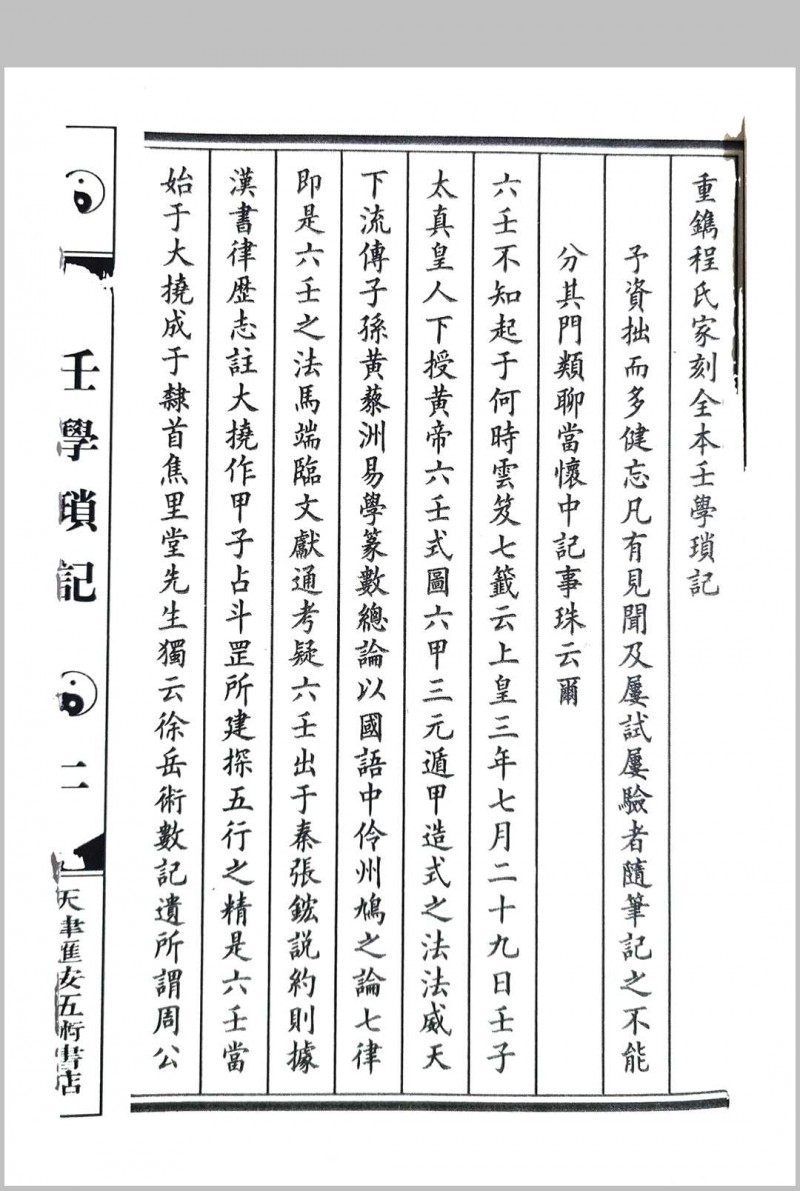 重鐫程氏家刻全本壬學瑣記
予資拙而多健忘凡有見聞及屢試屢驗者隨筆記之不能
分其門類聊當懷中記事珠云爾
六壬不知起于何時雲笈七籤云上皇三年七月二十九日壬子
太真皇人下授黃帝六壬式圖六甲三元遁甲造式之法法威天
下流傳子孫黃藜洲易學篆數總論以國語中伶州鳩之論七律
即是六壬之法馬端臨文獻通考疑六壬出于秦張鋐說約則據
漢書律歷志註大撓作甲子占斗罡所建探五行之精是六壬當
始于大撓成于隸首焦里堂先生獨云徐岳術數記遺所謂周公
壬學瑣記
二
天津匯安五術書店